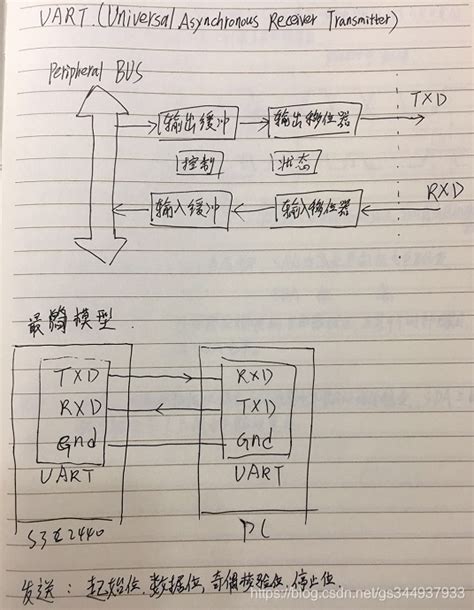 UART.(Universal Asynchronous Receiver Transmitter)
Peripheral BUS
输出缓冲 输出移位器 TXD
控制 状态
输入缓冲 输入移位器 RXD
最简模型.
TXD RXD
RXD TXD
Gnd Gnd
UART UART
S3C2440 PC
发送: 起始位.数据位,奇偶校验位.停止位.
https://blog.csdn.net/gs344937933